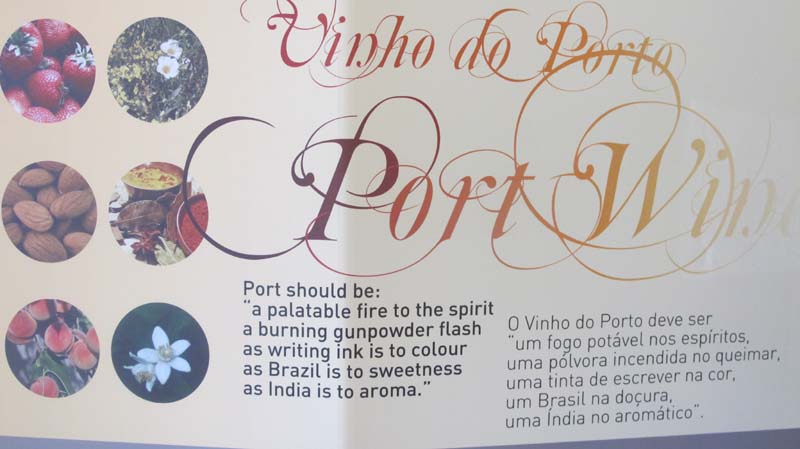 Vinho do Porto
Port Wine
Port should be:
"a palatable fire to the spirit
a burning gunpowder flash
as writing ink is to colour
as Brazil is to sweetness
as India is to aroma."
O Vinho do Porto deve ser
"um fogo potável nos espíritos,
uma pólvora incendida no queimar,
uma tinta de escrever na cor,
um Brasil na doçura,
uma Índia no aromático".